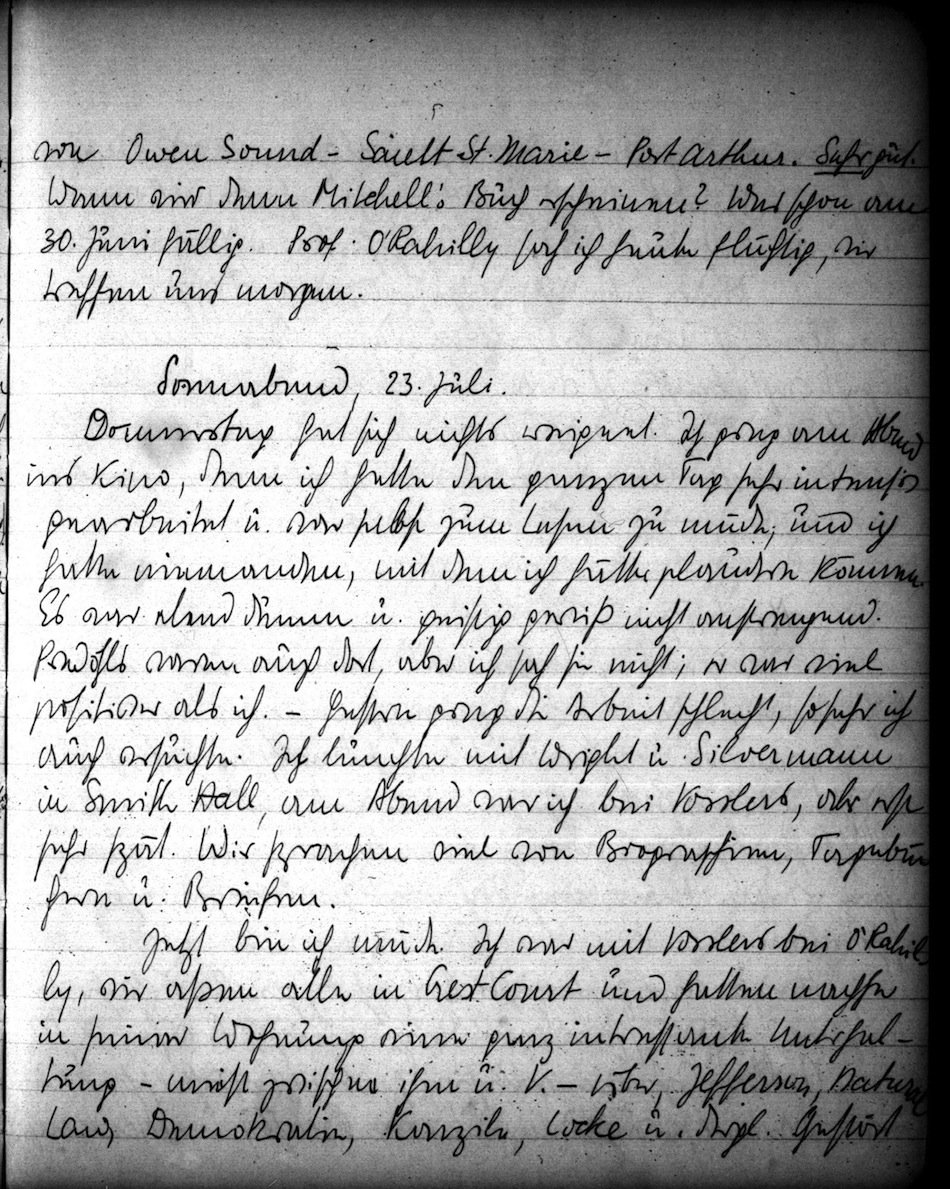 von Owen Sound - Sault St. Marie - Port Arthur. Sehr gut.
Wann wird denn Mitchell's Buch erscheinen? War schon am
30. Juni fällig. Prof. O'Rahilly sah ich heute flüchtig, wir
treffen uns morgen.
Sonnabend, 23. Juli.
Donnerstag hat sich nichts ereignet. Ich ging am Abend
ins Kino, denn ich hatte den ganzen Tag sehr intensiv
gearbeitet u. war selbst zum Lesen zu müde; und ich
hatte niemanden, mit dem ich hätte plaudern können.
Es war elend dumm u. geistig gewiß nicht anstrengend.
waren auch dort, aber ich sah sie nicht; er war viel
positiver als ich. - Gestern ging die Arbeit schlecht, so sehr ich
auch versuchte. Ich lunchte mit Wright u. Silvermann
in Smith Hall, am Abend war ich bei Kosslers, aber erst
sehr spät. Wir sprachen viel von Biographien, Tagebü
chern u. Briefen.
Jetzt bin ich müde. Ich war mit Kosslers bei O'Rahil
ly, wir aßen alle in Gest Court und hatten nachher
in seiner Wohnung eine ganz interessante Unterhal-
tung - meist zwischen ihm u. K. - über Jefferson, Natural
Law, Demokratie, Konzile, Locke u. dergl. Gestört